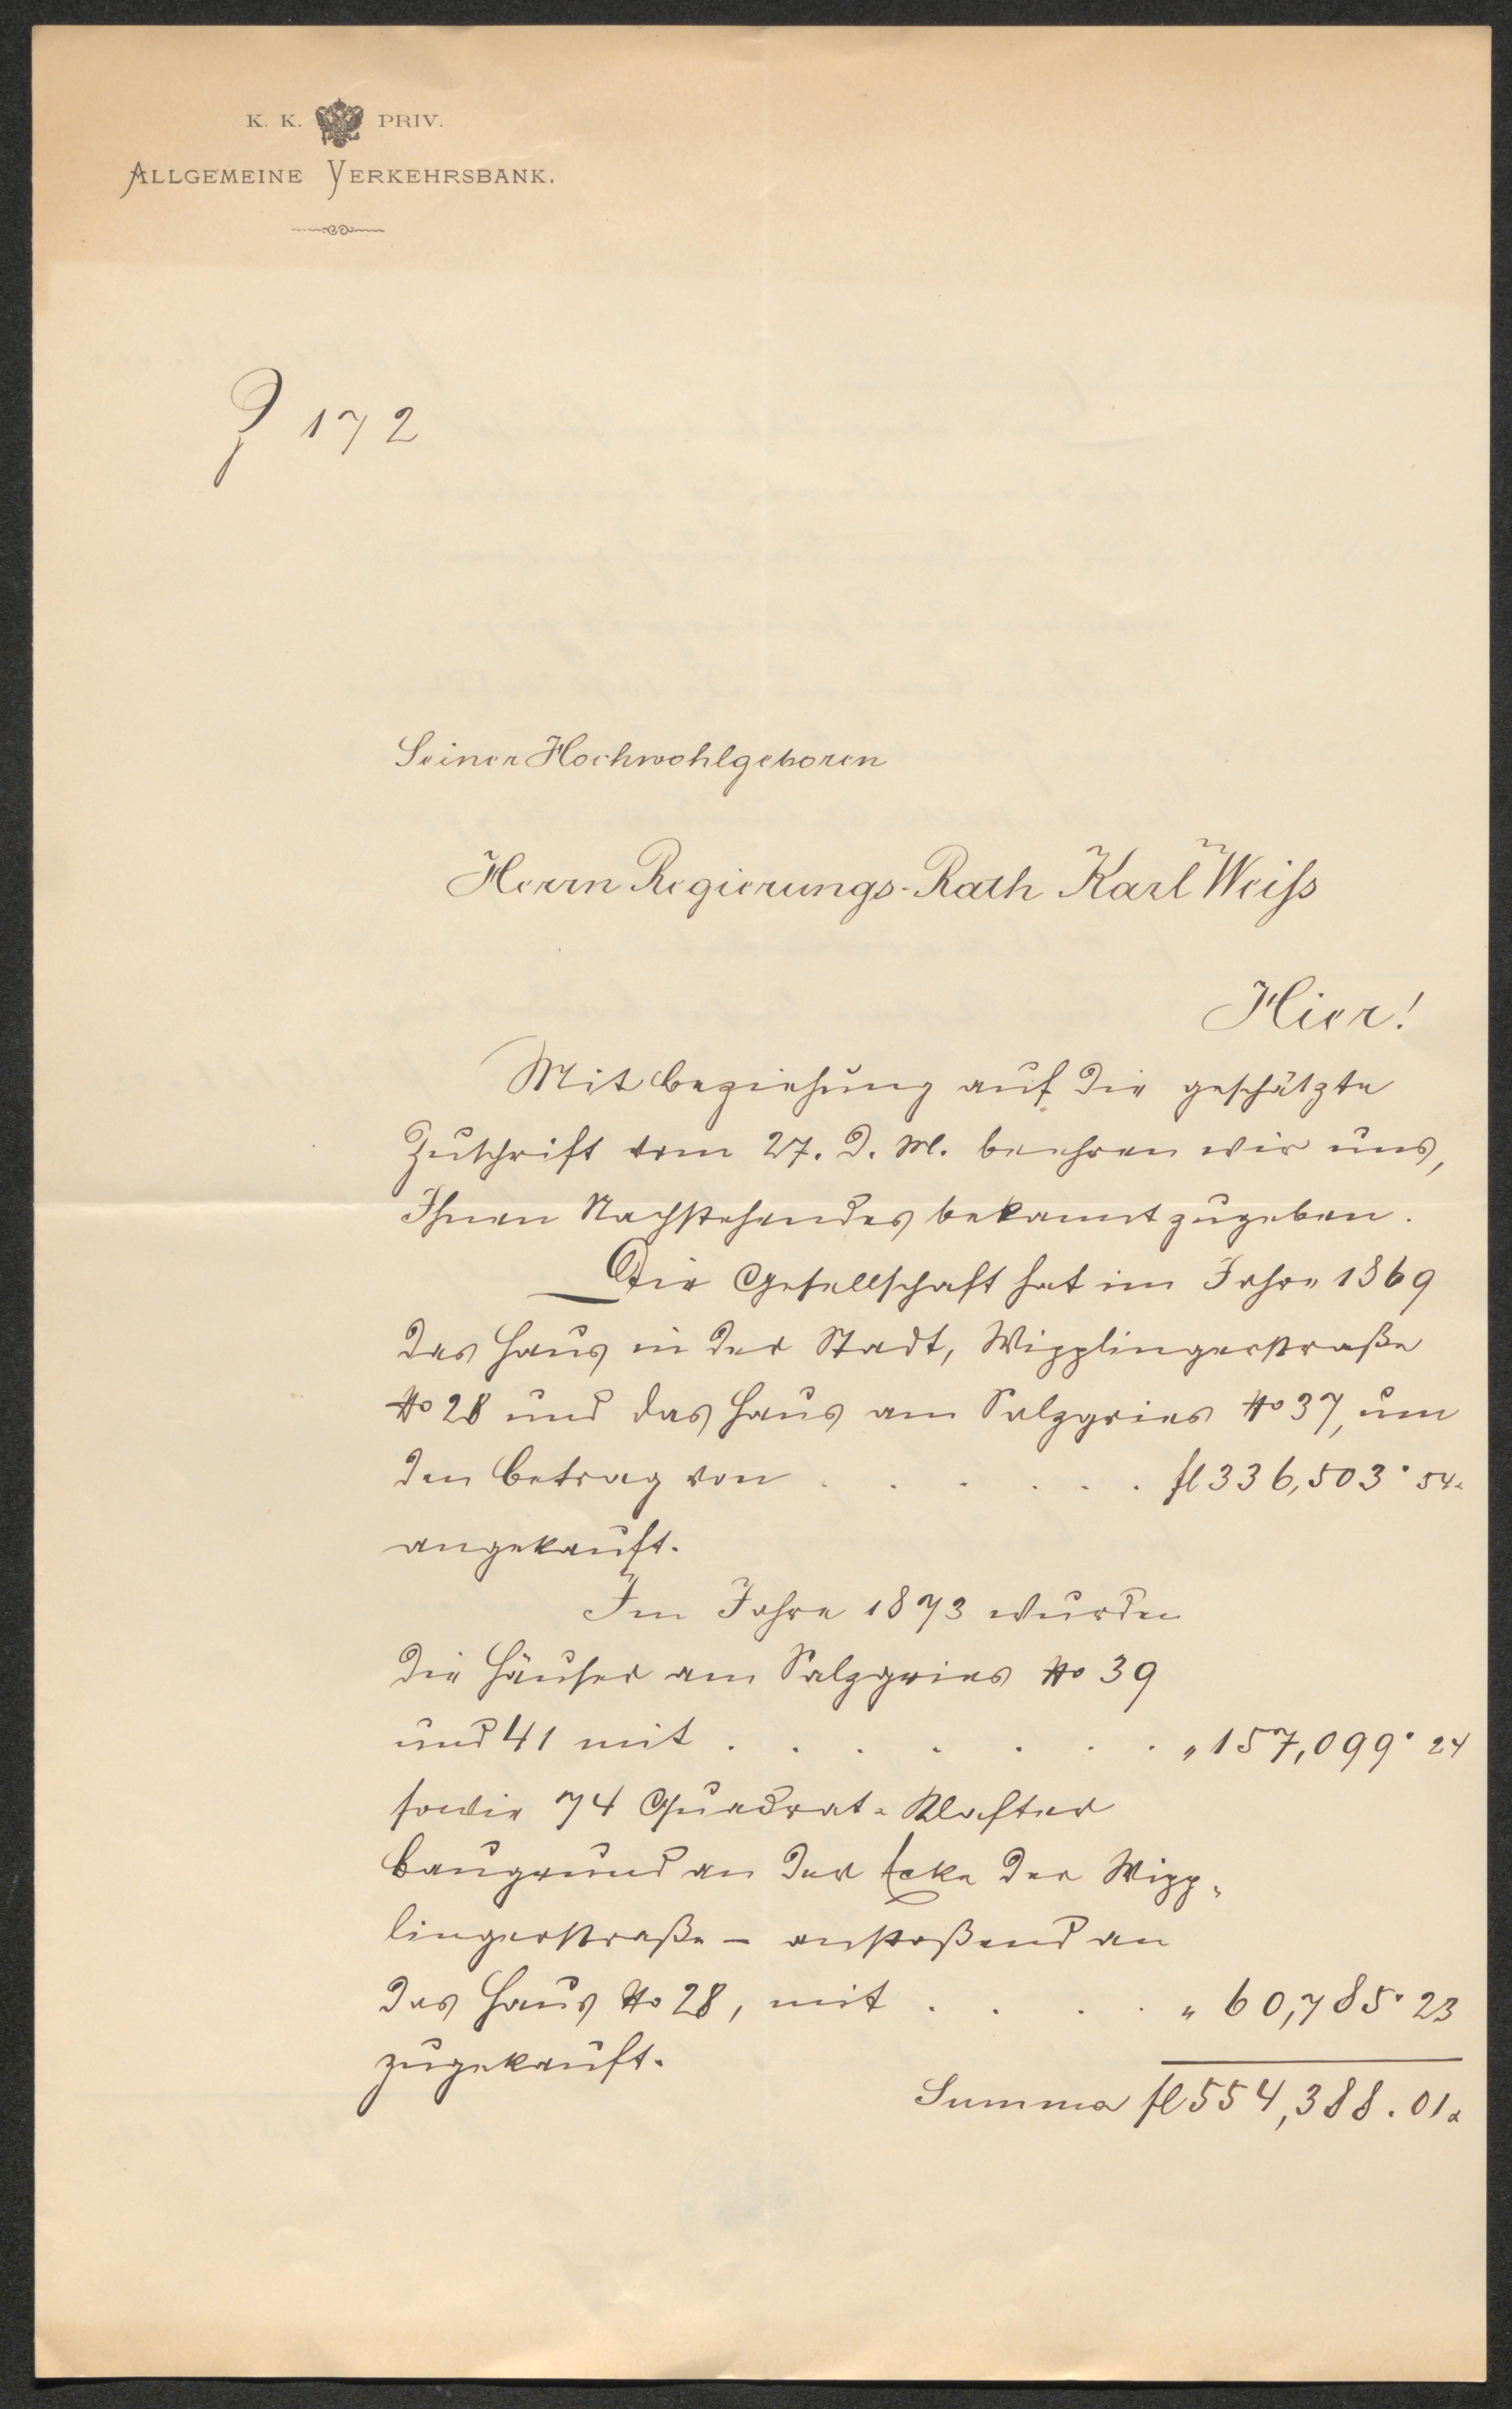 K. K. PRIV.
ALLGEMEINE VERKEHRSBANK.
172
Seiner Hochwohlgeboren
Herrn Regierungs-Rath Karl Weiss
Hier!
Mit Beziehung auf die geschätzte
Zuschrift vom 27. d. M. beehren wir uns,
Ihnen Nachstehendes bekannt zugeben.
Die Gesellschaft hat im Jahre 1869
das Haus in der Stadt, Wipplingerstraße
No 28 und das Haus am Salzgries No 37, um
den Betrag von . . . . . . fl 336,503·54.
angekauft.
Im Jahre 1873 wurden
die Häuser am Salzgries No 39
und 41 mit . . . . . . . „ 157,099·24
sowie 74 Quadrat-Klafter
Baugrund an der Ecke der Wipp-
lingerstraße – anstoßend an
das Haus No 28, mit . . . . „ 60,785·23
zugekauft.
Summa fl 554,388.01.